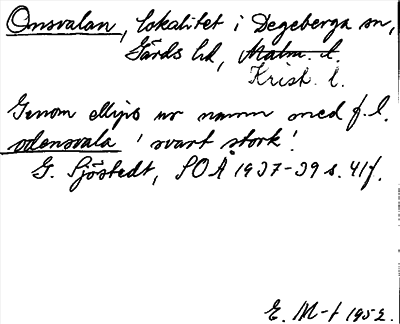 Onsvalan, lokalitet i Degeberga sn,
Gärds hd, Malm. l.
Krist. l.
Genom ellips ur namn med f.l.
odensvala 'svart stork'.
G. Sjöstedt, SOÅ 1937-39 s. 41f.
E. M-t 1952.